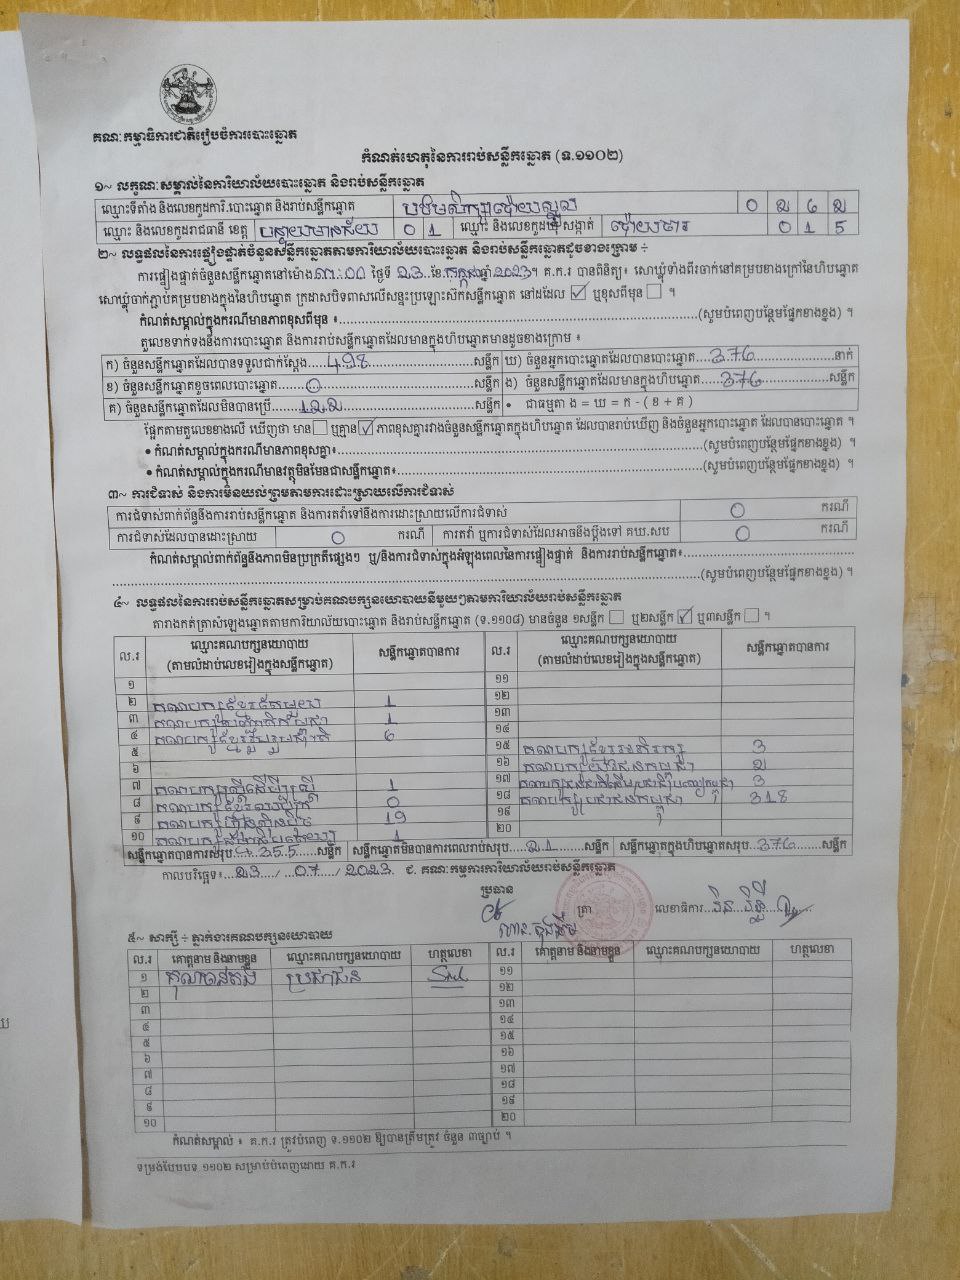 គណៈកម្មាធិការជាតិរៀបចំការបោះឆ្នោត
កំណត់ហេតុនៃការរាប់សន្លឹកឆ្នោត (ទ.១១០២)
១~ លក្ខណៈសម្គាល់នៃការិយាល័យបោះឆ្នោត និងរាប់សន្លឹកឆ្នោត
ឈ្មោះទីតាំង និងលេខកូដការិ.បោះឆ្នោត និងរាប់សន្លឹកឆ្នោត
ឈ្មោះ និងលេខកូដរាជធានី ខេត្ត បន្ទាយមានជ័យ 0 1 ឈ្មោះ និងលេខកូដឃុំ សង្កាត់ 0 1 5
២~ លទ្ធផលនៃការផ្ទៀងផ្ទាត់ចំនួនសន្លឹកឆ្នោតតាមការិយាល័យបោះឆ្នោត និងរាប់សន្លឹកឆ្នោតដូចខាងក្រោម ÷
ការផ្ទៀងផ្ទាត់ចំនួនសន្លឹកឆ្នោតនៅម៉ោង ៣:00 ថ្ងៃទី 23 ខែ កក្កដា ឆ្នាំ 2023។ គ.ក.រ បានពិនិត្យ៖ សោឃ្លុំទាំងពីរចាក់នៅគម្របខាងក្រៅនៃហិបឆ្នោត
សោឃ្លុំចាក់ភ្ជាប់គម្របខាងក្នុងនៃហិបឆ្នោត ក្រដាសបិទពាសលើសន្ទះប្រឡោះស៊កសន្លឹកឆ្នោត នៅដដែល ☑ ឬខុសពីមុន ☐ ។
កំណត់សម្គាល់ក្នុងករណីមានភាពខុសពីមុន ៖........(សូមបំពេញបន្ថែមផ្នែកខាងខ្នង) ។
តួលេខទាក់ទងនឹងការបោះឆ្នោត និងការរាប់សន្លឹកឆ្នោតដែលមានក្នុងហិបឆ្នោតមានដូចខាងក្រោម ៖
ក) ចំនួនសន្លឹកឆ្នោតដែលបានទទួលជាក់ស្តែង....498....សន្លឹក ឃ) ចំនួនអ្នកបោះឆ្នោតដែលបានបោះឆ្នោត....376....នាក់
ខ) ចំនួនសន្លឹកឆ្នោតខូចពេលបោះឆ្នោត....0....សន្លឹក ង) ចំនួនសន្លឹកឆ្នោតដែលមានក្នុងហិបឆ្នោត....376....សន្លឹក
គ) ចំនួនសន្លឹកឆ្នោតដែលមិនបានប្រើ....122....សន្លឹក • ជាធម្មតា ង = ឃ = ក - ( ខ + គ )
ផ្អែកតាមតួលេខខាងលើ ឃើញថា មាន ☐ ឬគ្មាន ☑ ភាពខុសគ្នារវាងចំនួនសន្លឹកឆ្នោតក្នុងហិបឆ្នោត ដែលបានរាប់ឃើញ និងចំនួនអ្នកបោះឆ្នោត ដែលបានបោះឆ្នោត ។
• កំណត់សម្គាល់ក្នុងករណីមានភាពខុសគ្នា៖........(សូមបំពេញបន្ថែមផ្នែកខាងខ្នង) ។
• កំណត់សម្គាល់ក្នុងករណីមានវត្ថុមិនមែនជាសន្លឹកឆ្នោត៖........(សូមបំពេញបន្ថែមផ្នែកខាងខ្នង) ។
៣~ ការជំទាស់ និងការមិនយល់ព្រមតាមការដោះស្រាយលើការជំទាស់
ការជំទាស់ពាក់ព័ន្ធនឹងការរាប់សន្លឹកឆ្នោត និងការតវ៉ាទៅនឹងការដោះស្រាយលើការជំទាស់ 0 ករណី
ការជំទាស់ដែលបានដោះស្រាយ 0 ករណី ការតវ៉ា ឬការជំទាស់ដែលអាចនឹងប្តឹងទៅ គឃ.សប 0 ករណី
កំណត់សម្គាល់ពាក់ព័ន្ធនឹងភាពមិនប្រក្រតីផ្សេងៗ ឬ/និងការជំទាស់ក្នុងអំឡុងពេលនៃការផ្ទៀងផ្ទាត់ និងការរាប់សន្លឹកឆ្នោត៖........
........(សូមបំពេញបន្ថែមផ្នែកខាងខ្នង) ។
៤~ លទ្ធផលនៃការរាប់សន្លឹកឆ្នោតសម្រាប់គណបក្សនយោបាយនីមួយៗតាមការិយាល័យរាប់សន្លឹកឆ្នោត
តារាងកត់ត្រាសំឡេងឆ្នោតតាមការិយាល័យបោះឆ្នោត និងរាប់សន្លឹកឆ្នោត (ទ.១១០៨) មានចំនួន ១សន្លឹក ☐ ឬ២សន្លឹក ☑ ឬ៣សន្លឹក ☐ ។
ល.រ ឈ្មោះគណបក្សនយោបាយ (តាមលំដាប់លេខរៀងក្នុងសន្លឹកឆ្នោត) សន្លឹកឆ្នោតបានការ ល.រ ឈ្មោះគណបក្សនយោបាយ (តាមលំដាប់លេខរៀងក្នុងសន្លឹកឆ្នោត) សន្លឹកឆ្នោតបានការ
១ ១១
២ គណបក្សខ្មែរតែមួយ 1 ១២
៣ គណបក្ស 1 ១៣
៤ គណបក្សខ្មែររួបរួមជាតិ 6 ១៤
៥ ១៥ គណបក្សខ្មែរអភិរក្ស 3
៦ ១៦ គណបក្សយុវជនកម្ពុជា 2
៧ គណបក្សស្ត្រីដើម្បីស្ត្រី 1 ១៧ 3
៨ គណបក្ស 0 ១៨ គណបក្សប្រជាជនកម្ពុជា 318
៩ គណបក្សហ៊្វុនស៊ិនប៉ិច 19 ១៩
១០ គណបក្ស 1 ២០
សន្លឹកឆ្នោតបានការសរុប....355....សន្លឹក សន្លឹកឆ្នោតមិនបានការពេលរាប់សរុប....21....សន្លឹក សន្លឹកឆ្នោតក្នុងហិបឆ្នោតសរុប..376....សន្លឹក
កាលបរិច្ឆេទ៖...23.../...07.../ 2023 ជ. គណៈកម្មការការិយាល័យរាប់សន្លឹកឆ្នោត
ប្រធាន
ត្រា លេខាធិការ
៥~ សាក្សី ÷ ភ្នាក់ងារគណបក្សនយោបាយ
ល.រ គោត្តនាម និងនាមខ្លួន ឈ្មោះគណបក្សនយោបាយ ហត្ថលេខា ល.រ គោត្តនាម និងនាមខ្លួន ឈ្មោះគណបក្សនយោបាយ ហត្ថលេខា
១ ប្រជាជន ១១
២ ១២
៣ ១៣
៤ ១៤
៥ ១៥
៦ ១៦
៧ ១៧
៨ ១៨
៩ ១៩
១០ ២០
កំណត់សម្គាល់ ៖ គ.ក.រ ត្រូវបំពេញ ទ.១១០២ ឱ្យបានត្រឹមត្រូវ ចំនួន ៣ច្បាប់ ។
ទម្រង់បែបបទ ១១០២ សម្រាប់បំពេញដោយ គ.ក.រ